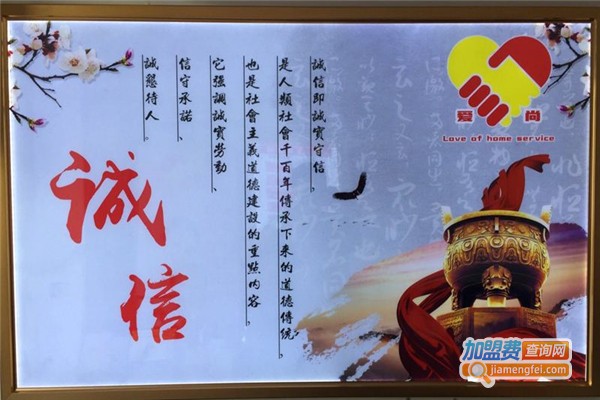 誠信即誠實守信、
是人類社會千百年傳承下來的道德傳統、
也是社會主義道德建設的重點内容、
它强調誠實勞動、
信守承諾、
誠懇待人、
誠信
爱尚
Love of home service
加盟费查询网
jiamengfei.com